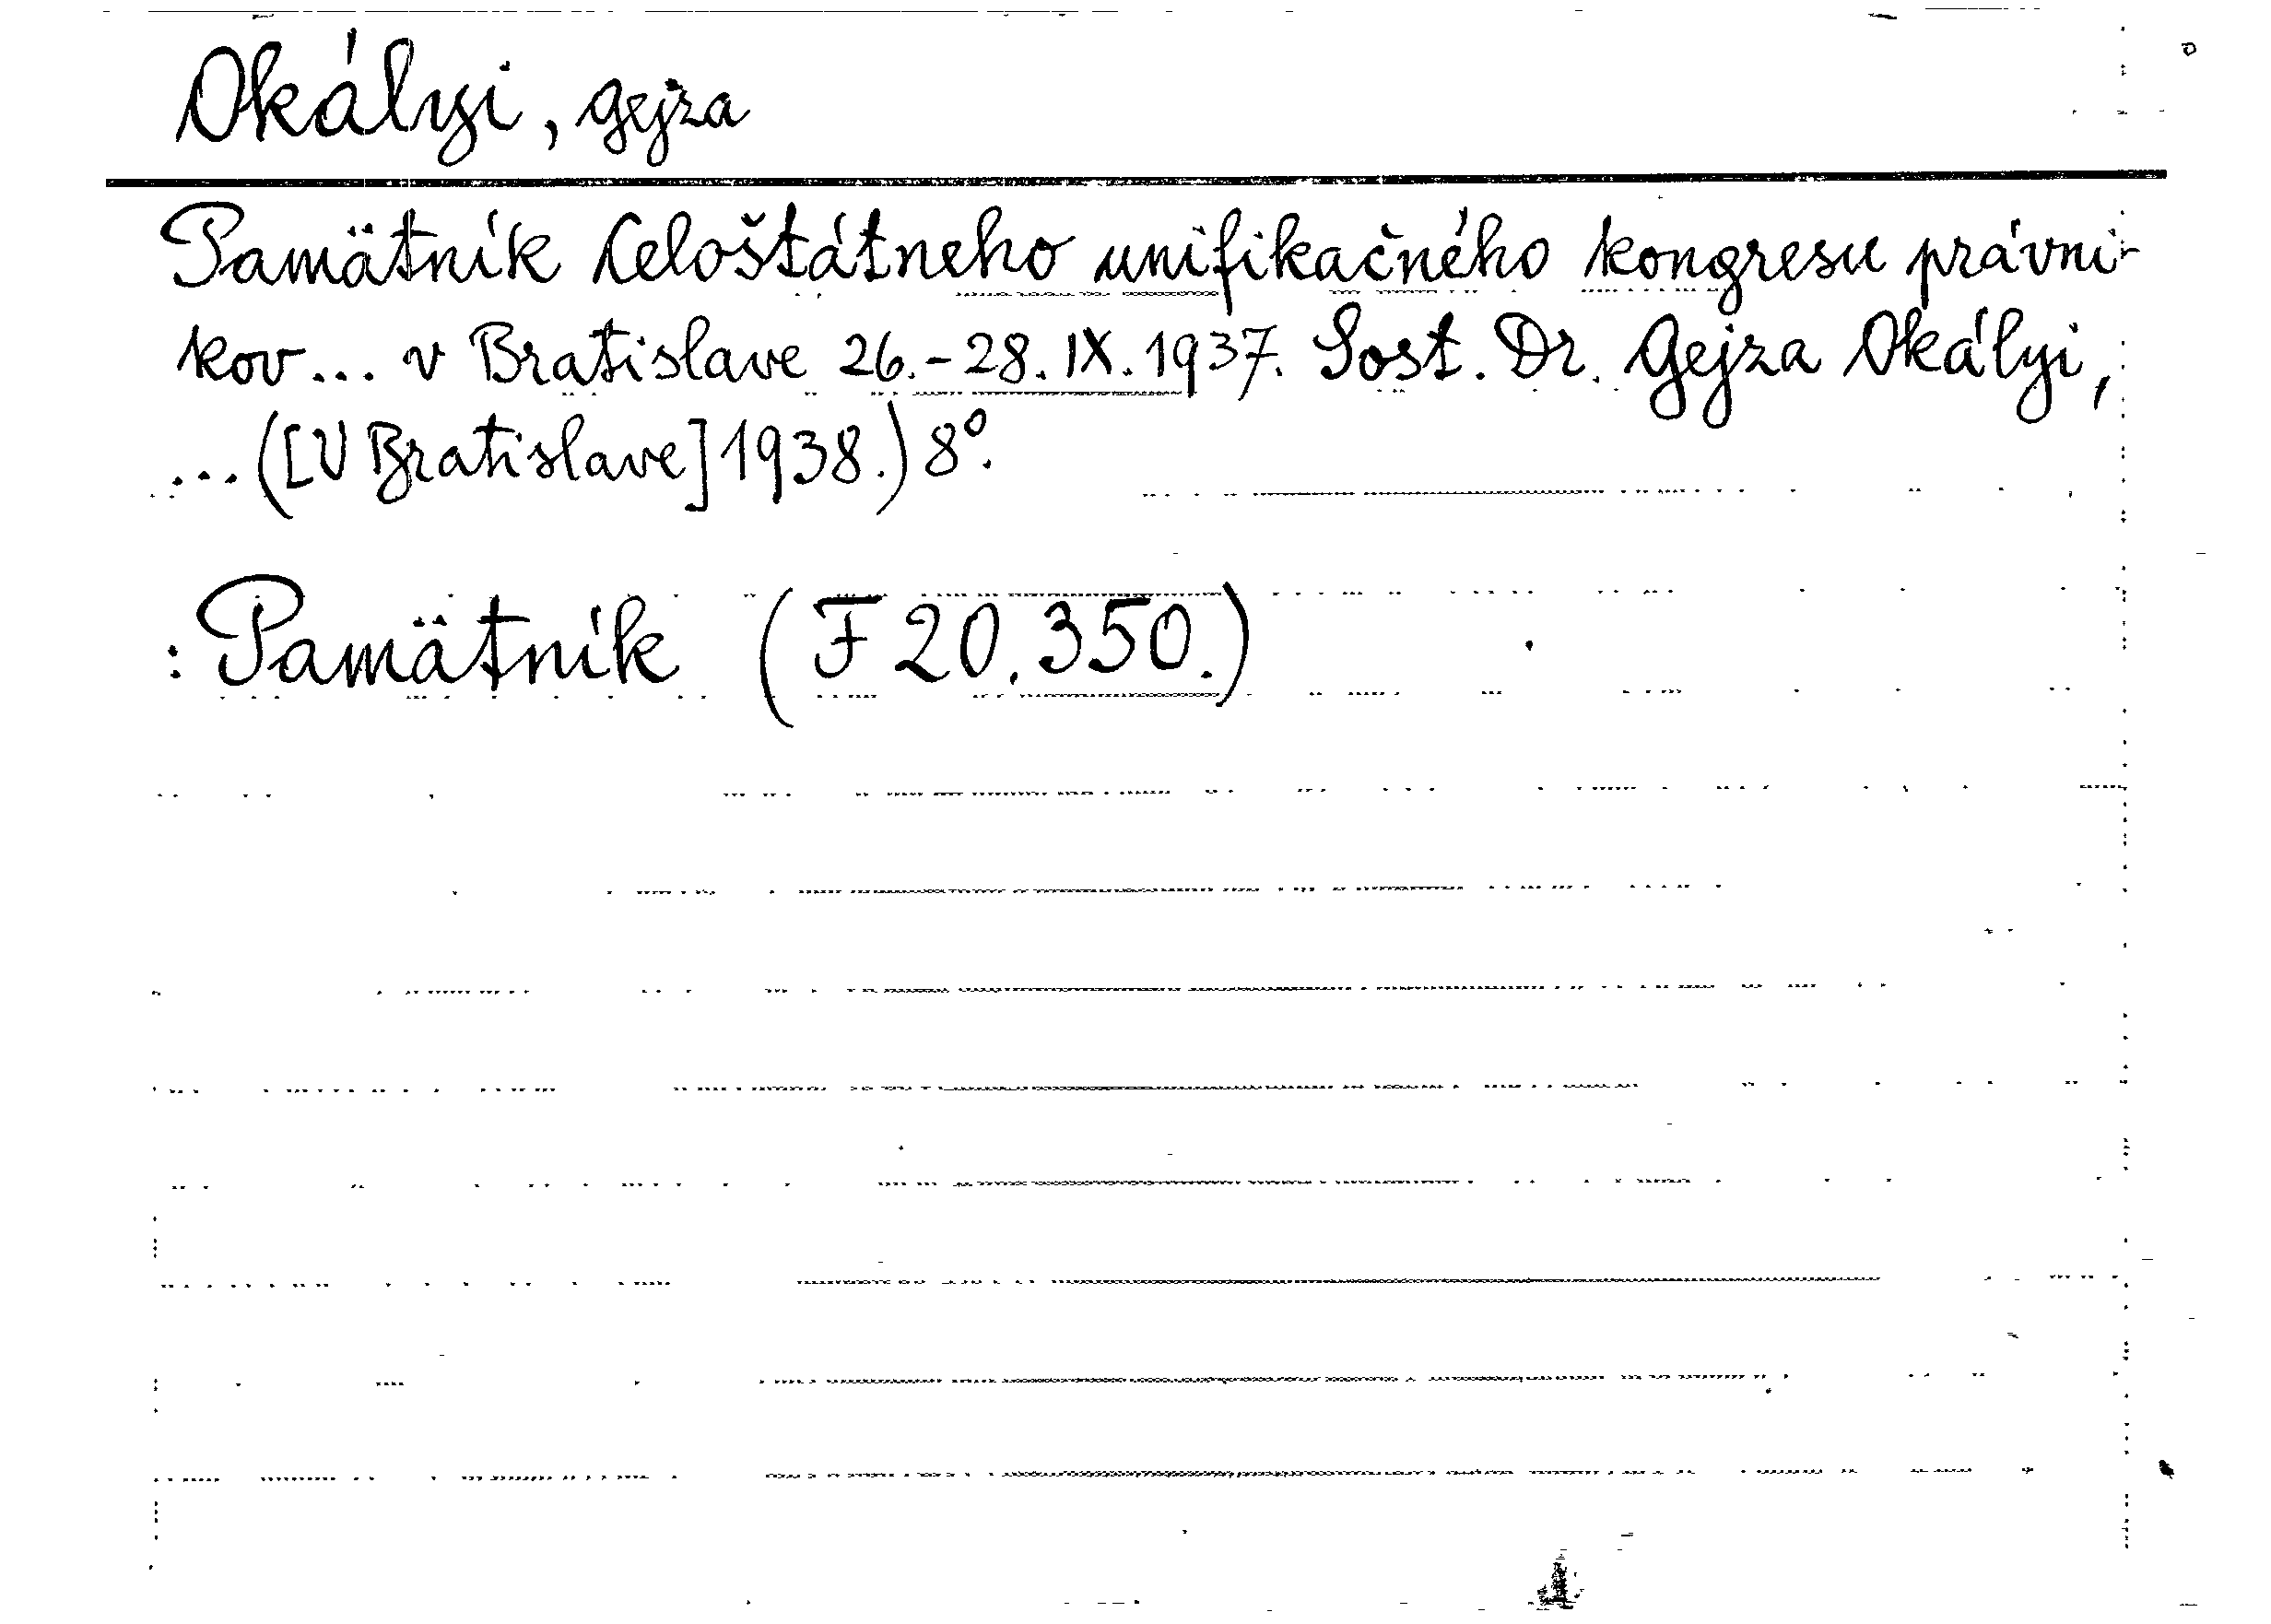 Okályi, Gejza
Pamätník Celoštátneho unifikačného kongresu právni-
kov... v Bratislave 26.-28. IX. 1937. Sost. Dr. Gejza Okályi,
...([V Bratislave] 1938.) 8º.
: Pamätník (F 20.350.)